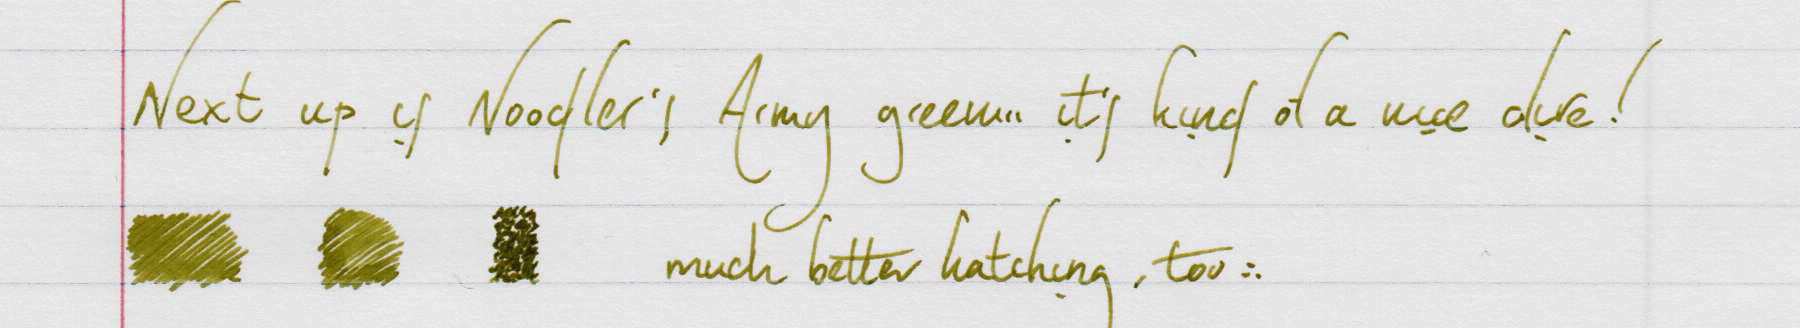 Next up is Noodler's Army green... it's kind of a nice olive!
much better hatching, too...